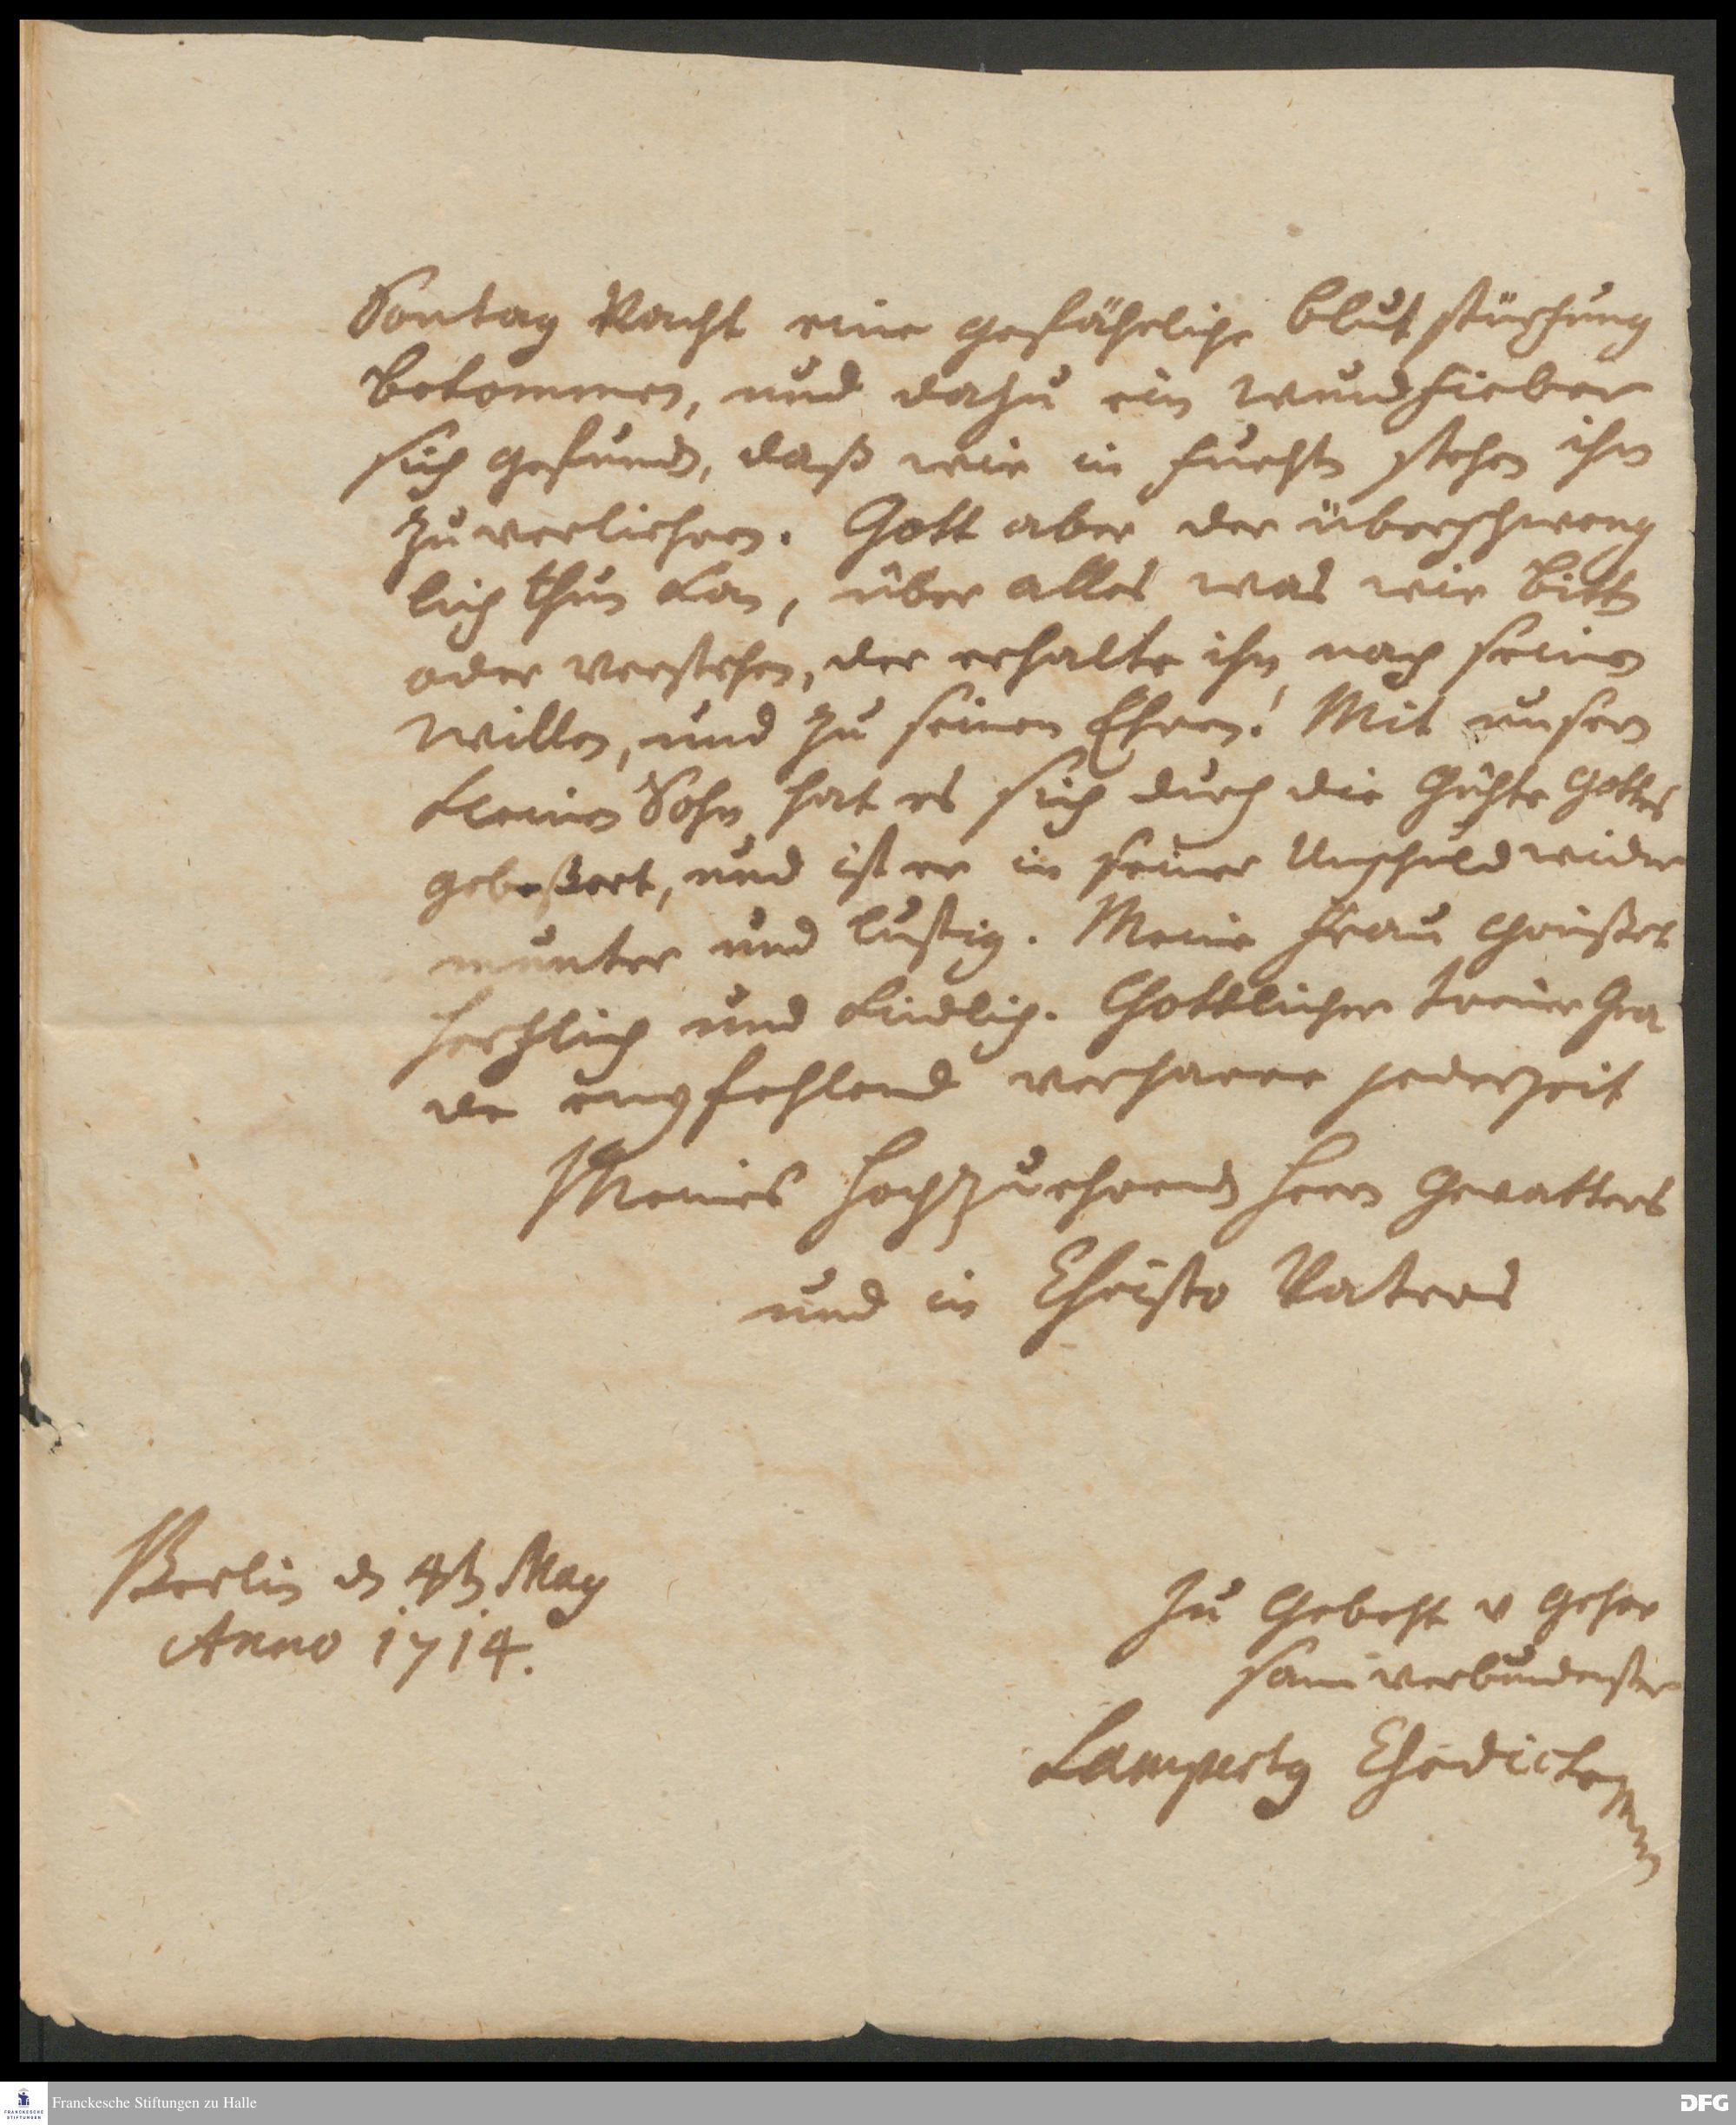 Sontag Nacht eine gefährliche blut stürtzung
bekommen, und dazu ein wundfieber
sich gefunden, daß wir in furchten stehen ihn
zu verliehren. Gott aber der überschweng
lich thun kan, über alles was wir bitten
oder verstehen, der erhalte ihn nach seinen
willen, und zu seinen Ehren! Mit unsern
kleinen Sohn hat es sich durch die Gühte Gottes
gebeßert, und ist er in seiner Unschuld wider
munter und lustig. Meine frau Grüßet
hertzlich und kindlich. Göttlicher treüer Gna
de empfehlend verharre jederzeit
Meines Hochzuehrenden Herrn Gevatters
und in Christo Vaters
Berlin den 4ten May
Anno 1714.
Zu Gebeht u Gehor
sam verbundenster
Lampertg
Franckesche Stiftungen zu Halle
FRANCKESCHE
STIFTUNGEN
DFG